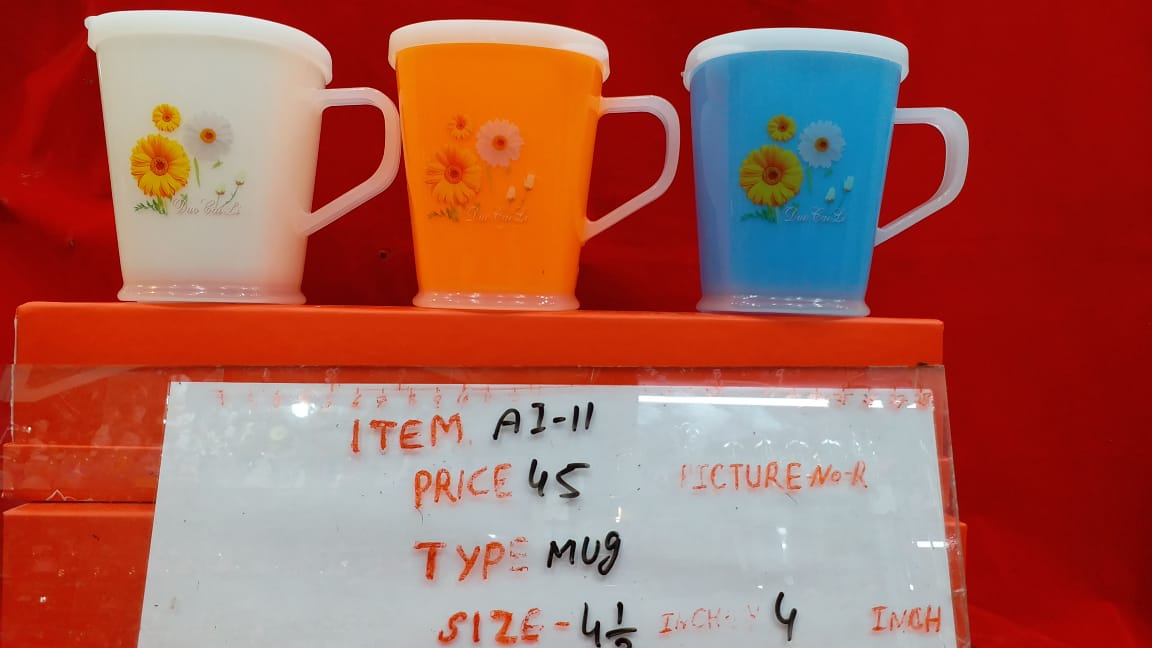 Duo Cai Li
Duo Cai Li
Duo Cai Li
ITEM. AI-11
PRICE 45 PICTURE No-R
TYPE MUg
SIZE - 4 1/2 INCH X 4 INCH